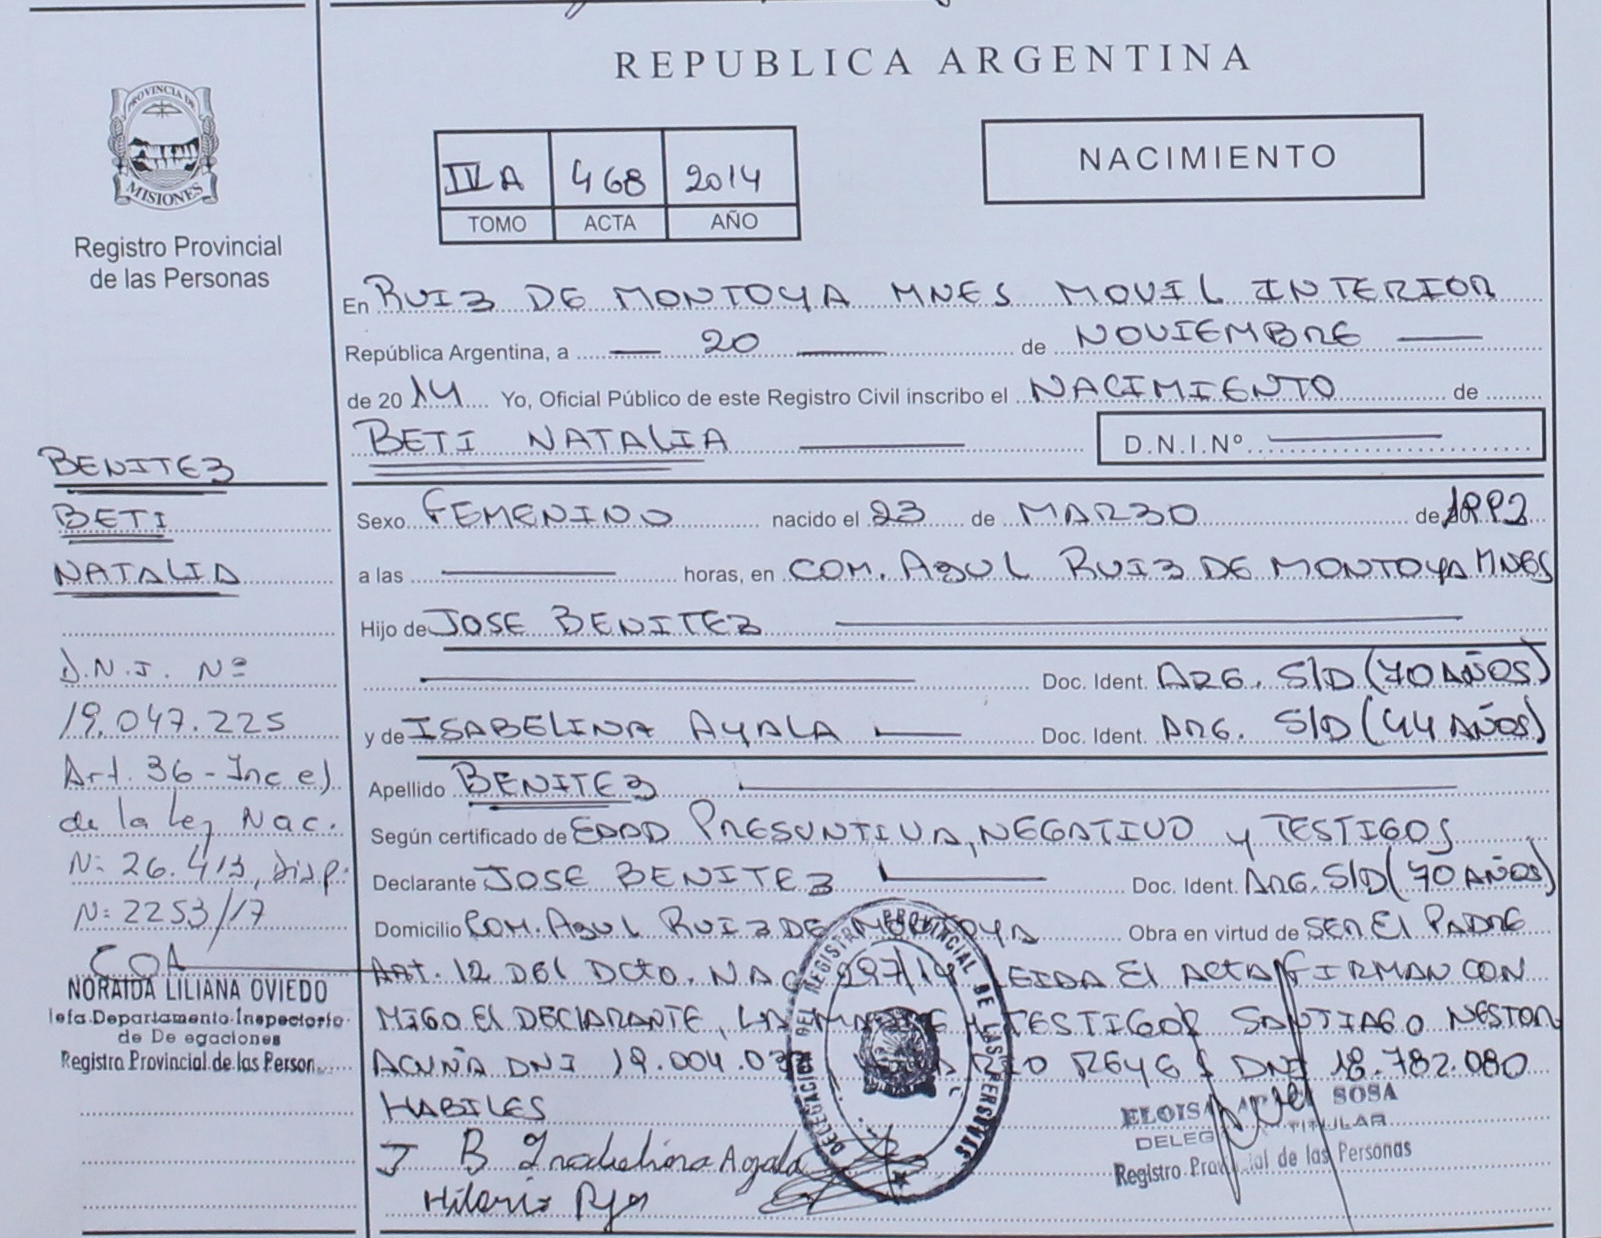 REPUBLICA ARGENTINA
PROVINCIA DE
MISIONES
Registro Provincial
de las Personas
IV A 468 2014
TOMO ACTA AÑO
NACIMIENTO
En RUIZ DE MONTOYA MNES MOVIL INTERIOR
República Argentina, a 20 de NOVIEMBRE
de 2014 Yo, Oficial Público de este Registro Civil inscribo el NACIMIENTO de
BETI NATALIA D.N.I. Nº
BENITEZ
BETI
NATALIA
D.N.I. Nº
19.047.225
Art. 36 - Inc e)
de la Ley Nac.
Nº 26.413, Disp.
Nº 2253/17
NORAIDA LILIANA OVIEDO
Jefa Departamento Inspectoria
de De egaciones
Registro Provincial de las Person
Sexo FEMENINO nacido el 23 de MARZO de 1992
a las horas, en COM. AZUL RUIZ DE MONTOYA MNES
Hijo de JOSE BENITEZ
Doc. Ident. ARG. S/D (70 AÑOS)
y de ISABELINA AYALA Doc. Ident. ARG. S/D (44 AÑOS)
Apellido BENITEZ
Según certificado de EDAD PRESUNTIVA, NEGATIVO Y TESTIGOS
Declarante JOSE BENITEZ Doc. Ident. ARG. S/D (70 AÑOS)
Domicilio COM. AZUL RUIZ DE MONTOYA Obra en virtud de SER EL PADRE
ART. 12 DEL DCTO. NAC 297/14 LEIDA EL ACTA FIRMAN CON
MIGO EL DECLARANTE, LA MADRE Y TESTIGOS SANTIAGO NESTOR
ACUÑA DNI 19.004. REYES DNI 18.782.080
HABILES
DELEGACION DEL REGISTRO PROVINCIAL DE LAS PERSONAS
ELOISA SOSA
DELEG TITULAR
Registro Provincial de las Personas
J B Ayala
Hilario